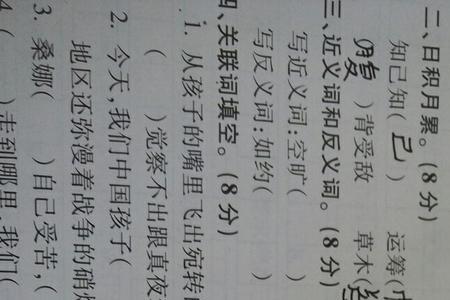 二、日积月累。(8分)
知己知(己) 运筹(
)背受敌 草木(
三、近义词和反义词。(8分)
写近义词:空旷( )
写反义词:如约( )
四、关联词填空。(8分)
1. 从孩子的嘴里飞出宛转
( )觉察不出跟真夜
2. 今天,我们中国孩子(
地区还弥漫着战争的硝
3. 桑娜( )自己受苦,(
4. ( )走到哪里,我们(